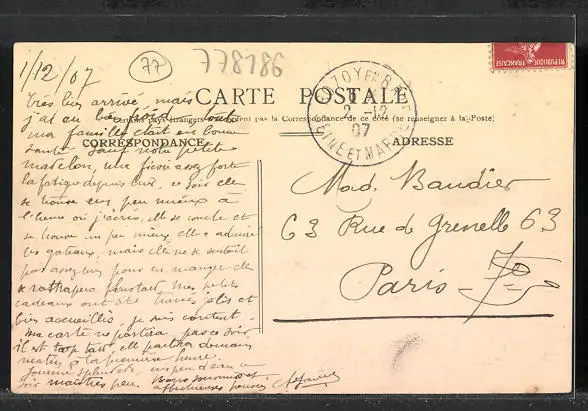 1/12/07
77
778186
Très bien arrivé, mais
j'ai eu bien froid, toute
ma famille était en bonne
santé sauf notre petite
une fièvre assez forte
la fatigue depuis hier, ce soir elle
se trouve un peu mieux à
l'heure où j'écris, elle se couche et
se trouve un peu mieux, elle a admiré
les gâteaux, mais elle ne se sentait
pas assez bien pour en manger elle
se rattrapera pourtant, mes petits
cadeaux ont été trouvés jolis et
bien accueillis, je suis content.
ma carte ne partira pas ce soir
il est trop tard, elle partira demain
matin à la première heure.
Journée splendide, un peu d'eau ce
soir mais très peu. Bons souvenirs et
affectueuses pensées
CARTE POSTALE
pas la Correspondance de ce côté (se renseigner à la Poste)
CORRESPONDANCE
ADRESSE
2 -12
07
SEINE ET MARNE
REPUBLIQUE FRANÇAISE
Mad. Baudier
63 Rue de Grenelle 63
Paris